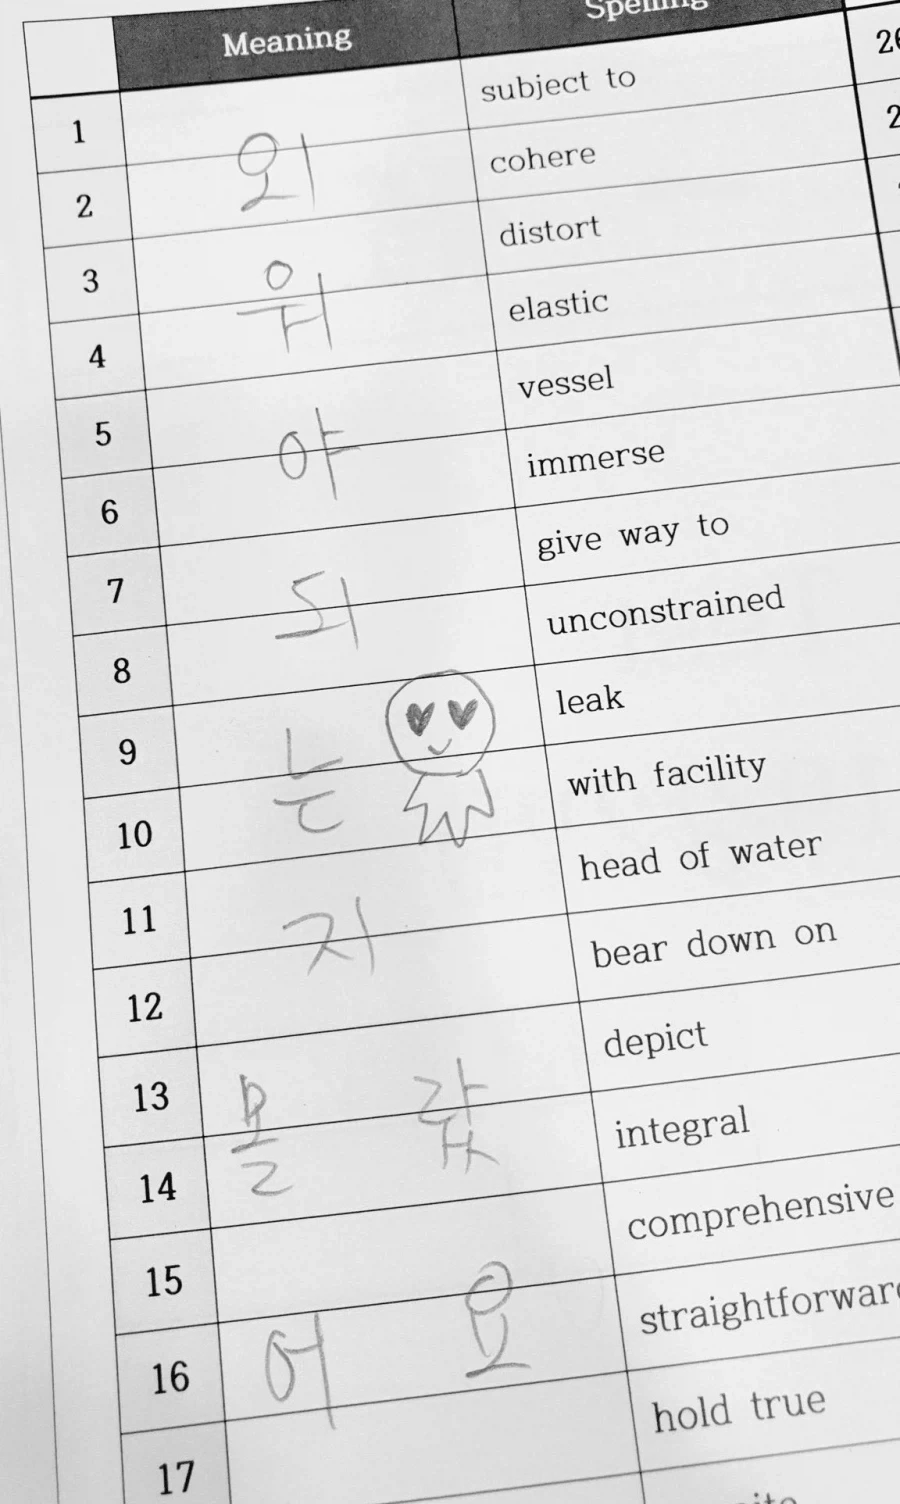 Meaning Spelling
1 subject to
2 외 cohere
3 distort
4 워 elastic
5 vessel
6 야 immerse
7 give way to
8 되 unconstrained
9 leak
10 는 with facility
11 head of water
12 지 bear down on
13 depict
14 몰 랐 integral
15 comprehensive
16 어 요 straightforward
17 hold true